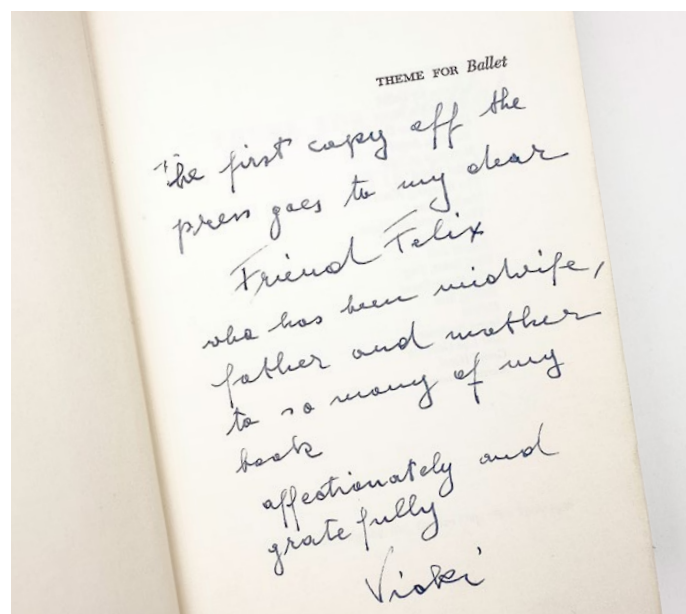 THEME FOR Ballet
The first copy off the
press goes to my dear
Friend Felix
who has been midwife,
father and mother
to so many of my
book
affectionately and
gratefully
Vicki